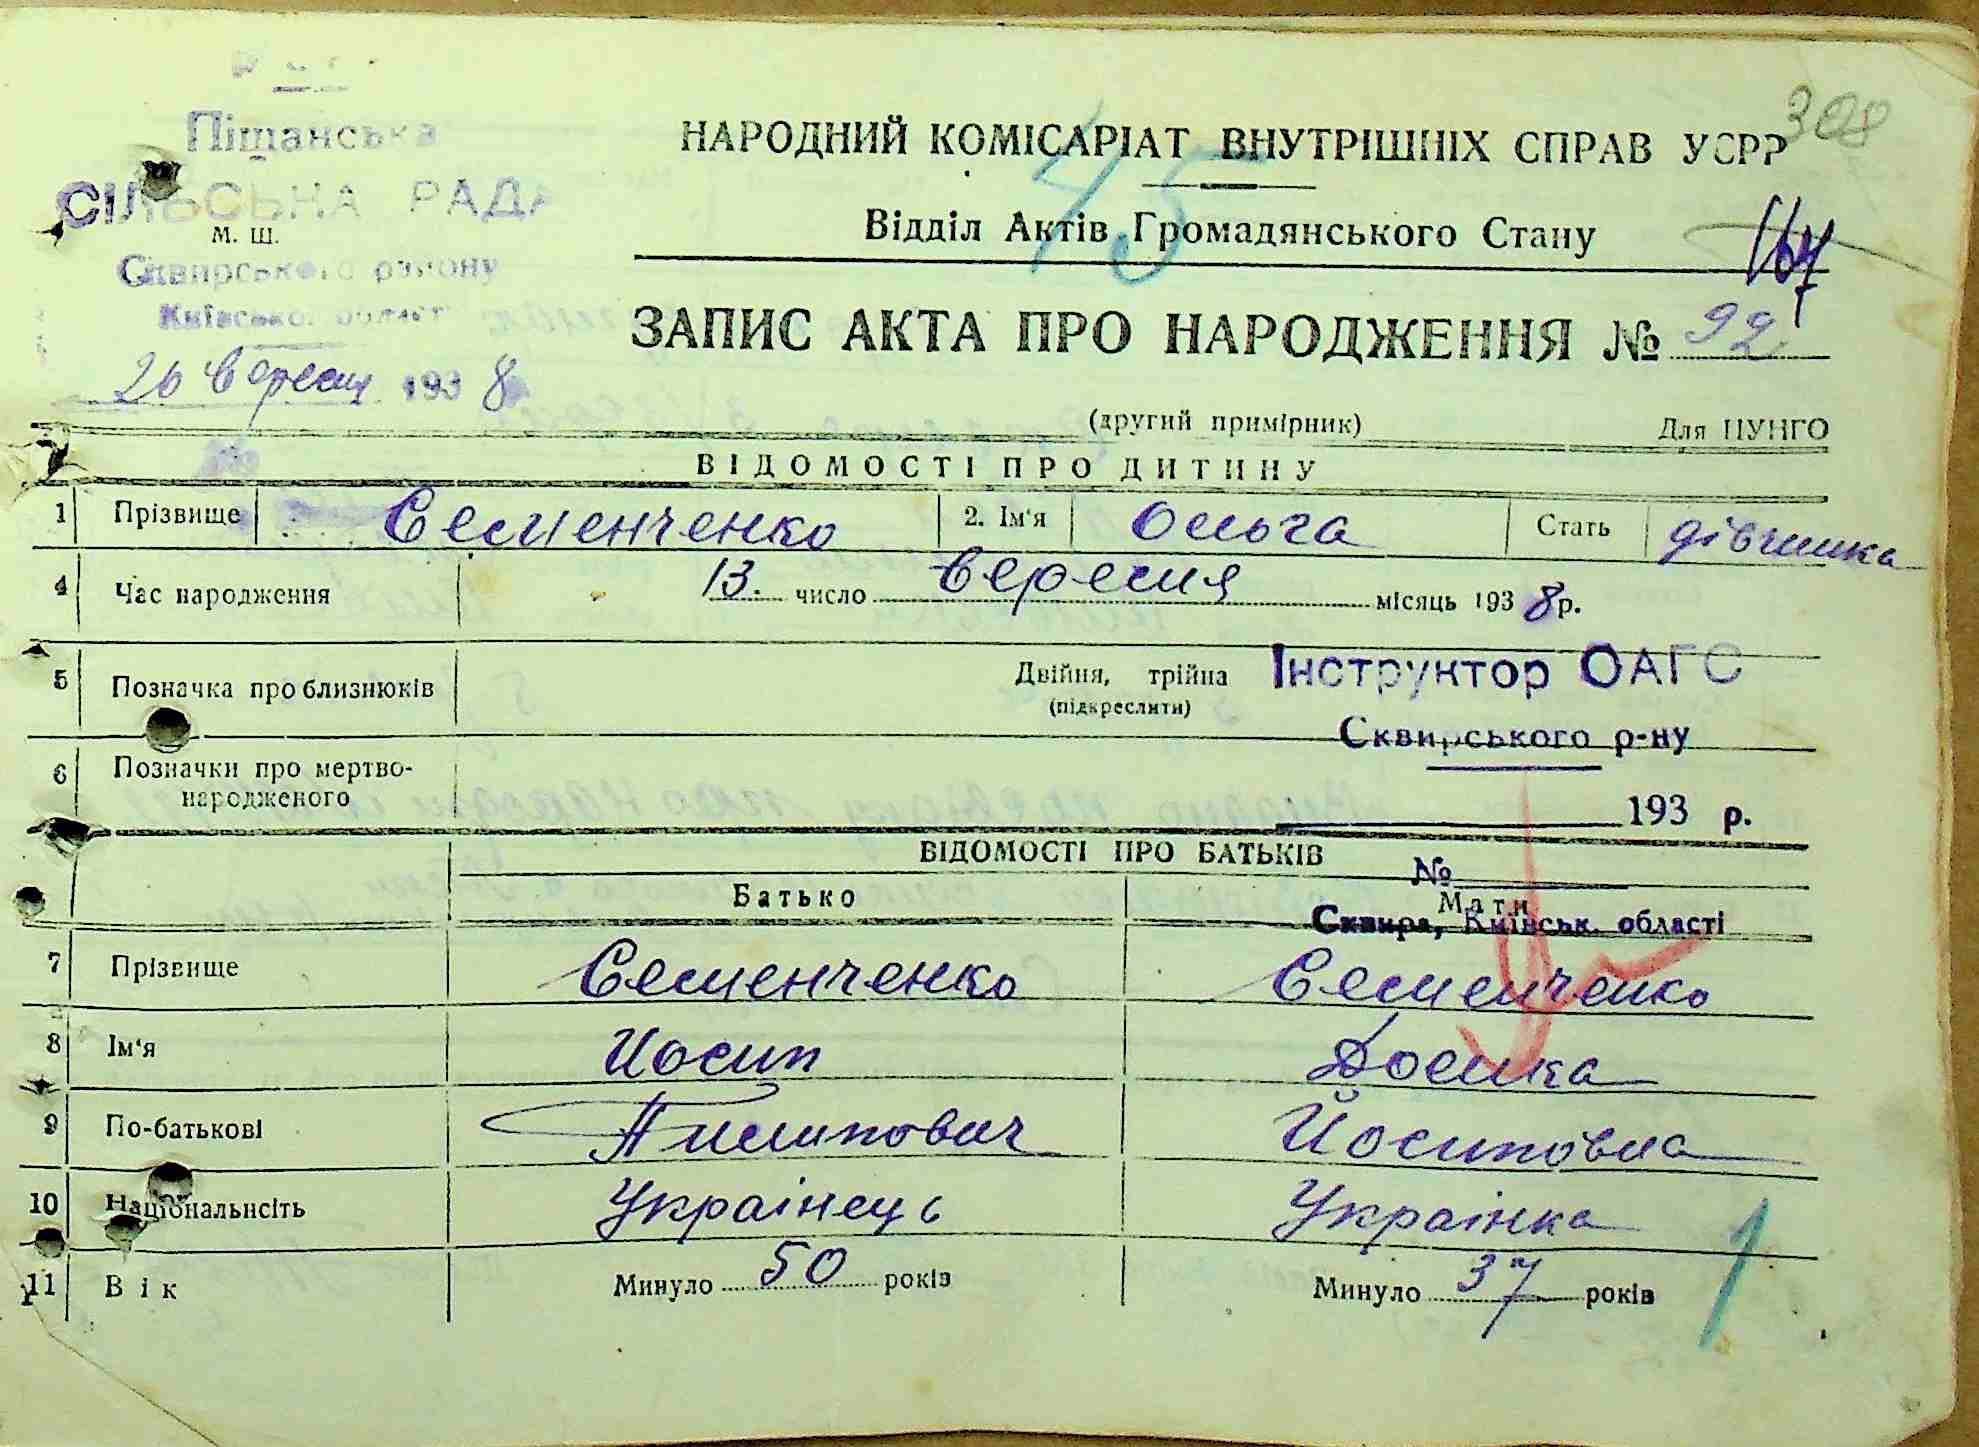 308
Піщанська
СІЛЬСЬКА РАДА
М. Ш.
Сквирського району
Київської області
26 Вересня 1938
НАРОДНИЙ КОМІСАРІАТ ВНУТРІШНІХ СПРАВ УСРР
45
Відділ Актів Громадянського Стану
ЗАПИС АКТА ПРО НАРОДЖЕННЯ № 92
(другий примірник) Для ЦУНГО
ВІДОМОСТІ ПРО ДИТИНУ
1 Прізвище Семенченко 2. Ім'я Ольга Стать дівчинка
4 Час народження 13. число Вересня місяць 1938 р.
5 Позначка про близнюків Двійня, трійна
(підкреслити)
Інструктор ОАГС
Сквирського р-ну
6 Позначки про мертво-
народженого
193 р.
ВІДОМОСТІ ПРО БАТЬКІВ
№
Батько Мати
Сквира, Київськ. області
7 Прізвище Семенченко Семенченко
8 Ім'я Йосип Доська
9 По-батькові Пилипович Йосиповна
10 Національнсіть Українець Українка
11 Вік Минуло 50 років Минуло 37 років
1